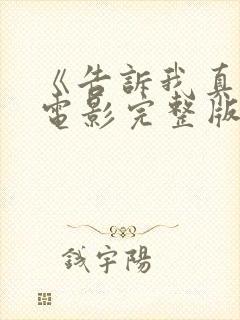 《告訴我真
電影完整版
钱宇陽